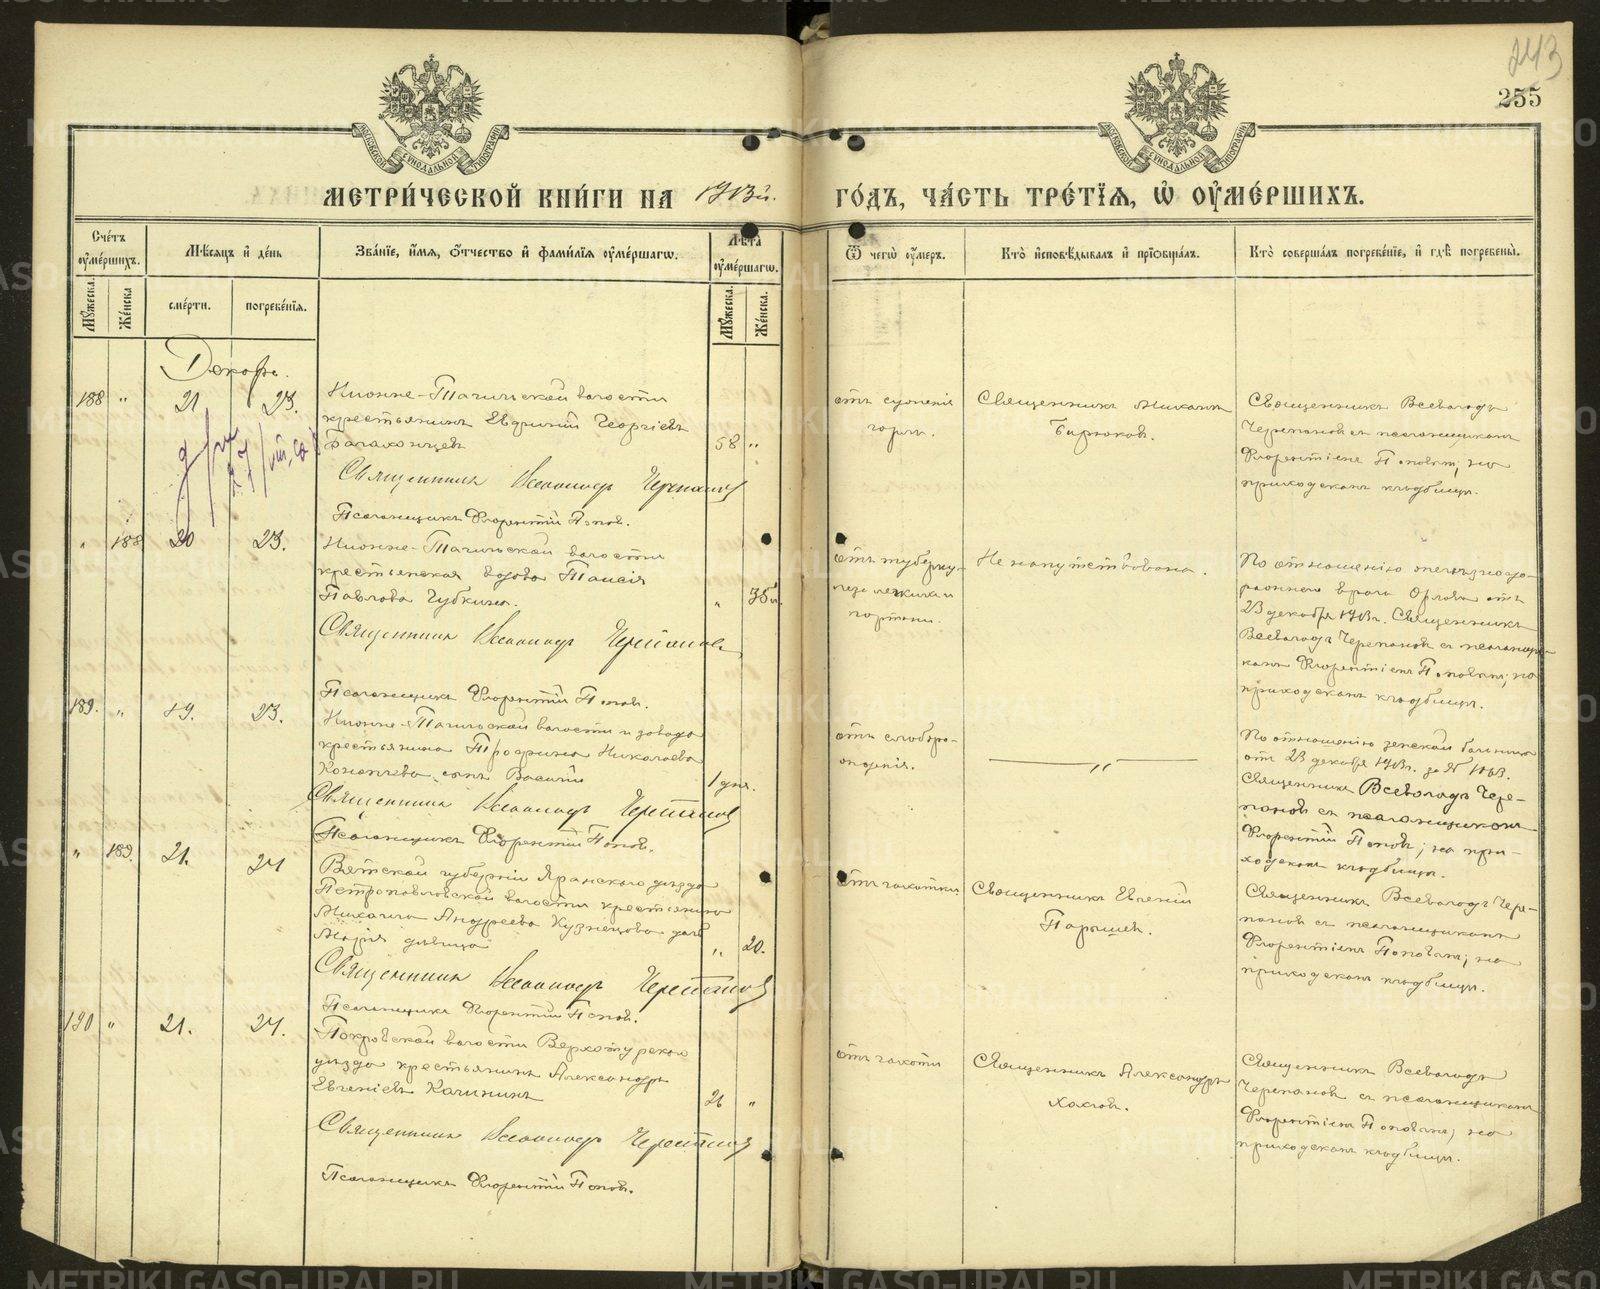 243
255
МЕТРИ́ЧЕСКОЙ КНИ́ГИ НА 1913й. ГО́ДЪ, ЧА́СТЬ ТРЕ́ТЇѦ, Ѡ ОУМЕ́РШИХЪ.
Сче́тъ оумершихъ.
Мѣсяцъ и де́нь
Зва́нїе, и́мя, о́тчество и фами́лїя оуме́ршагѡ.
Лѣта оуме́ршагѡ.
Ѿ чегѡ̀ оу́меръ.
Кто̀ и҆сповѣ́дывалъ и҆ прїѡбща́лъ.
Кто̀ соверша́лъ погребе́нїе, и҆ гдѣ̀ погребены̀.
Мꙋ́жеска.
Же́нска
сме́рти.
погребе́нїя.
Мꙋ́жеска.
Же́нска.
Декабрь.
188 " 21 23.
Нижне-Тагильской волости
крестьянинъ Евдокий Георгіевъ
Балаконцевъ
58 "
Священникъ Всеволодъ Черепановъ
Псаломщикъ Флорентій Поповъ.
отъ суженія
горла.
Священникъ Михаилъ
Бирюковъ.
Священникъ Всеволодъ
Черепановъ съ псаломщикомъ
Флорентіемъ Поповымъ; на
приходскомъ кладбищѣ.
" 188 20 23.
Нижне-Тагильской волости
крестьянская вдова Таисія
Павлова Губкина.
" 35
Священникъ Всеволодъ Черепановъ
Псаломщикъ Флорентій Поповъ.
отъ туберку-
леза легкихъ и
гортани.
Не напутствована.
По отношенію желѣзнодо-
рожнаго врача Орлова отъ
23 декабря 1913 г. Священникъ
Всеволодъ Черепановъ съ псаломщи-
комъ Флорентіемъ Поповымъ; на
приходскомъ кладбищѣ.
189. " 19. 23.
Нижне-Тагильской волости и завода
крестьянина Трофима Николаева
сынъ Василій
1 дня.
Священникъ Всеволодъ Черепановъ
Псаломщикъ Флорентій Поповъ.
отъ слаборо-
жденія.
— " —
По отношенію земской больницы
отъ 23 декабря 1913 г. за №
Священникъ Всеволодъ Чере-
пановъ съ псаломщикомъ
Флорентій Поповъ; на при-
ходскомъ кладбищѣ.
" 189. 21. 24
Вятской губерніи Яранского уѣзда
Петропавловской волости крестьянина
Михаила Андреева Кузнецова дочь
Марія дѣвица
" 20.
Священникъ Всеволодъ Черепановъ
Псаломщикъ Флорентій Поповъ.
отъ чахотки
Священникъ Евгеній
Парышев.
Священникъ Всеволодъ Чере-
пановъ съ псаломщикомъ
Флорентіемъ Поповымъ; на
приходскомъ кладбищѣ.
190 " 21. 24.
Покровской волости Верхотурскаго
уѣзда крестьянинъ Александръ
Евгеніевъ Калининъ
26 "
Священникъ Всеволодъ Черепановъ
Псаломщикъ Флорентій Поповъ.
отъ чахотки
Священникъ Александръ
Хохлов.
Священникъ Всеволодъ
Черепановъ съ псаломщикомъ
Флорентіемъ Поповымъ; на
приходскомъ кладбищѣ.
METRIKI.GASO-URAL.RU